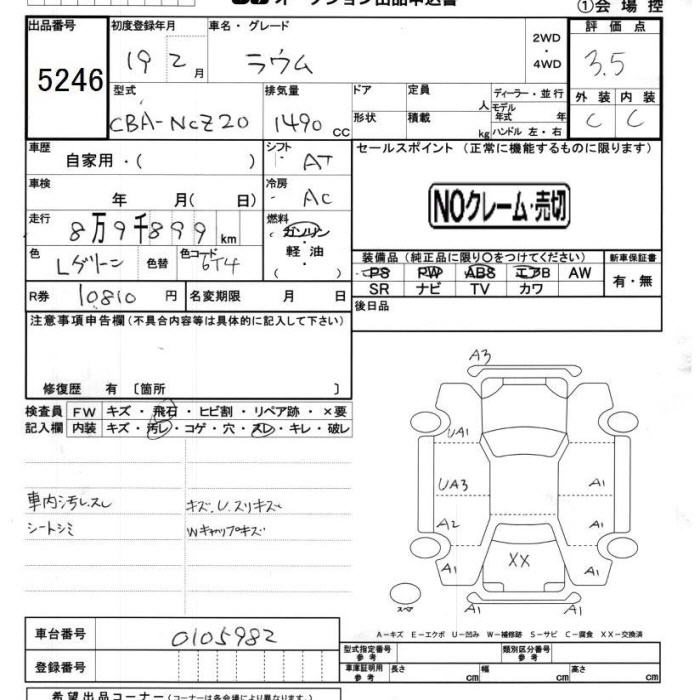 オークション出品申込書 ①会場控
出品番号 初度登録年月 車名・グレード 評価点
5246 19 2月 ラウム 2WD・4WD 3.5
型式 排気量 ドア 定員 人 ディーラー・並行 外装 内装
CBA-NCZ20 1490 CC 形状 積載 kg モデル年式 年 ハンドル 左・右 C C
車歴 自家用・( ) シフト AT セールスポイント (正常に機能するものに限ります)
車検 年 月( 日) 冷房 AC
NOクレーム・売切
走行 8万9千899km 燃料 ガソリン・軽油・( )
色 Lグリーン 色替 色コード 6T4
装備品(純正品に限り○をつけてください) 新車保証書
PS PW ABS エアB AW 有・無
SR ナビ TV カワ
R券 10,810円 名変期限 月 日 後日品
注意事項申告欄(不具合内容等は具体的に記入して下さい)
修復歴 有〔箇所 〕
検査員 FW キズ・飛石・ヒビ割・リペア跡・×要
記入欄 内装 キズ・汚レ・コゲ・穴・スレ・キレ・破レ
車内汚レ.スレ キズ.U.スリキズ
シートシミ Wキャップキズ
A3
UA1
UA3 A1
A2 A1
XX
A1 A1 A1
スペア
A-キズ E-エクボ U-凹み W-補修跡 S-サビ C-腐食 XX-交換済
車台番号 0105982
型式指定番号参考 類別区分番号参考
登録番号
車庫証明用参考 長さ cm 幅 cm 高さ cm
希望出品コーナー(コーナーは各会場により異なります)